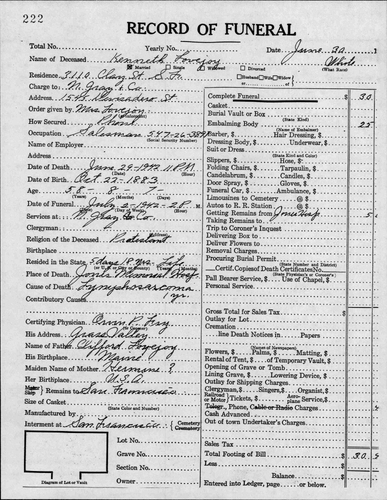 222
RECORD OF FUNERAL
Total No. Yearly No. Date June 30
Name of Deceased Kenneth Lovejoy White
Married Single Widowed Divorced (What Race)
Residence 3110 Clay St. S.F. Husband Wife Widow
Charge to M. Gray & Co.
Address 1545 Divisadero St
Order given by Mrs. Lovejoy
How Secured Phone
Occupation Salesman (Social Security Number)
Name of Employer
Address
Date of Death June 29-1942 11 P.M.
Date of Birth Oct. 22-1883
Age 58 - 8 - 7
(Years) (Months) (Days)
Date of Funeral July 2-1942 - 2 P. M
Services at M. Gray & Co.
Clergyman
Religion of the Deceased Protestant
Birthplace
Resided in the State
Place of Death Jones Memorial Hosp
Cause of Death Lymphosarcoma
Contributory Causes 1 yr.
Certifying Physician
His Address
Name of Father Clifford Lovejoy
His Birthplace Maine
Maiden Name of Mother Hermine ?
Her Birthplace U.S.A.
Remains to San Francisco
Size of Casket
(State Color and Number)
Manufactured by
Interment at San Francisco Cemetery Crematory
Lot No.
Grave No.
Section No.
Owner
Diagram of Lot or Vault
Complete Funeral $ 30
Casket
Burial Vault or Box
(State Kind)
Embalming Body 25
(Name of Embalmer)
Barber, $ Hair Dressing, $
Dressing Body, $ Underwear, $
Suit or Dress
(State Kind and Color)
Slippers, $ Hose, $
Folding Chairs, $ Tarpaulin, $
Candelabrum, $ Candles, $
Door Spray, $ Gloves, $
Funeral Car, $ Ambulance, $
Limousines to Cemetery @ $
Autos to R. R. Station @ $
Getting Remains from Jones Hosp 5
Taking Remains to
Trip to Coroner's Inquest
Delivering Box to
Deliver Flowers to
Removal Charges
Procuring Burial Permit
(State Number and District)
Certif. Copies of Death Certificates No.
Pall Bearer Service, $ Use of Chapel, $
Personal Service
Gross Total for Sales Tax
Outlay for Lot
Cremation
line Death Notices in Papers
(Names of Newspapers)
Flowers, $ Palms, $ Matting, $
Rental of Tent, $ of Temporary Vault, $
Opening of Grave or Tomb
Lining Grave, $ Lowering Device, $
Outlay for Shipping Charges
Clergyman, $ Singers, $ Organist, $
Railroad or Motor Tickets, $ Aeroplane Service, $
Phone, Charges
Cash Advanced
Out of town Undertaker's Charges
Sales Tax
Total Footing of Bill $ 30.
Less
Balance
Entered into Ledger, page or below.